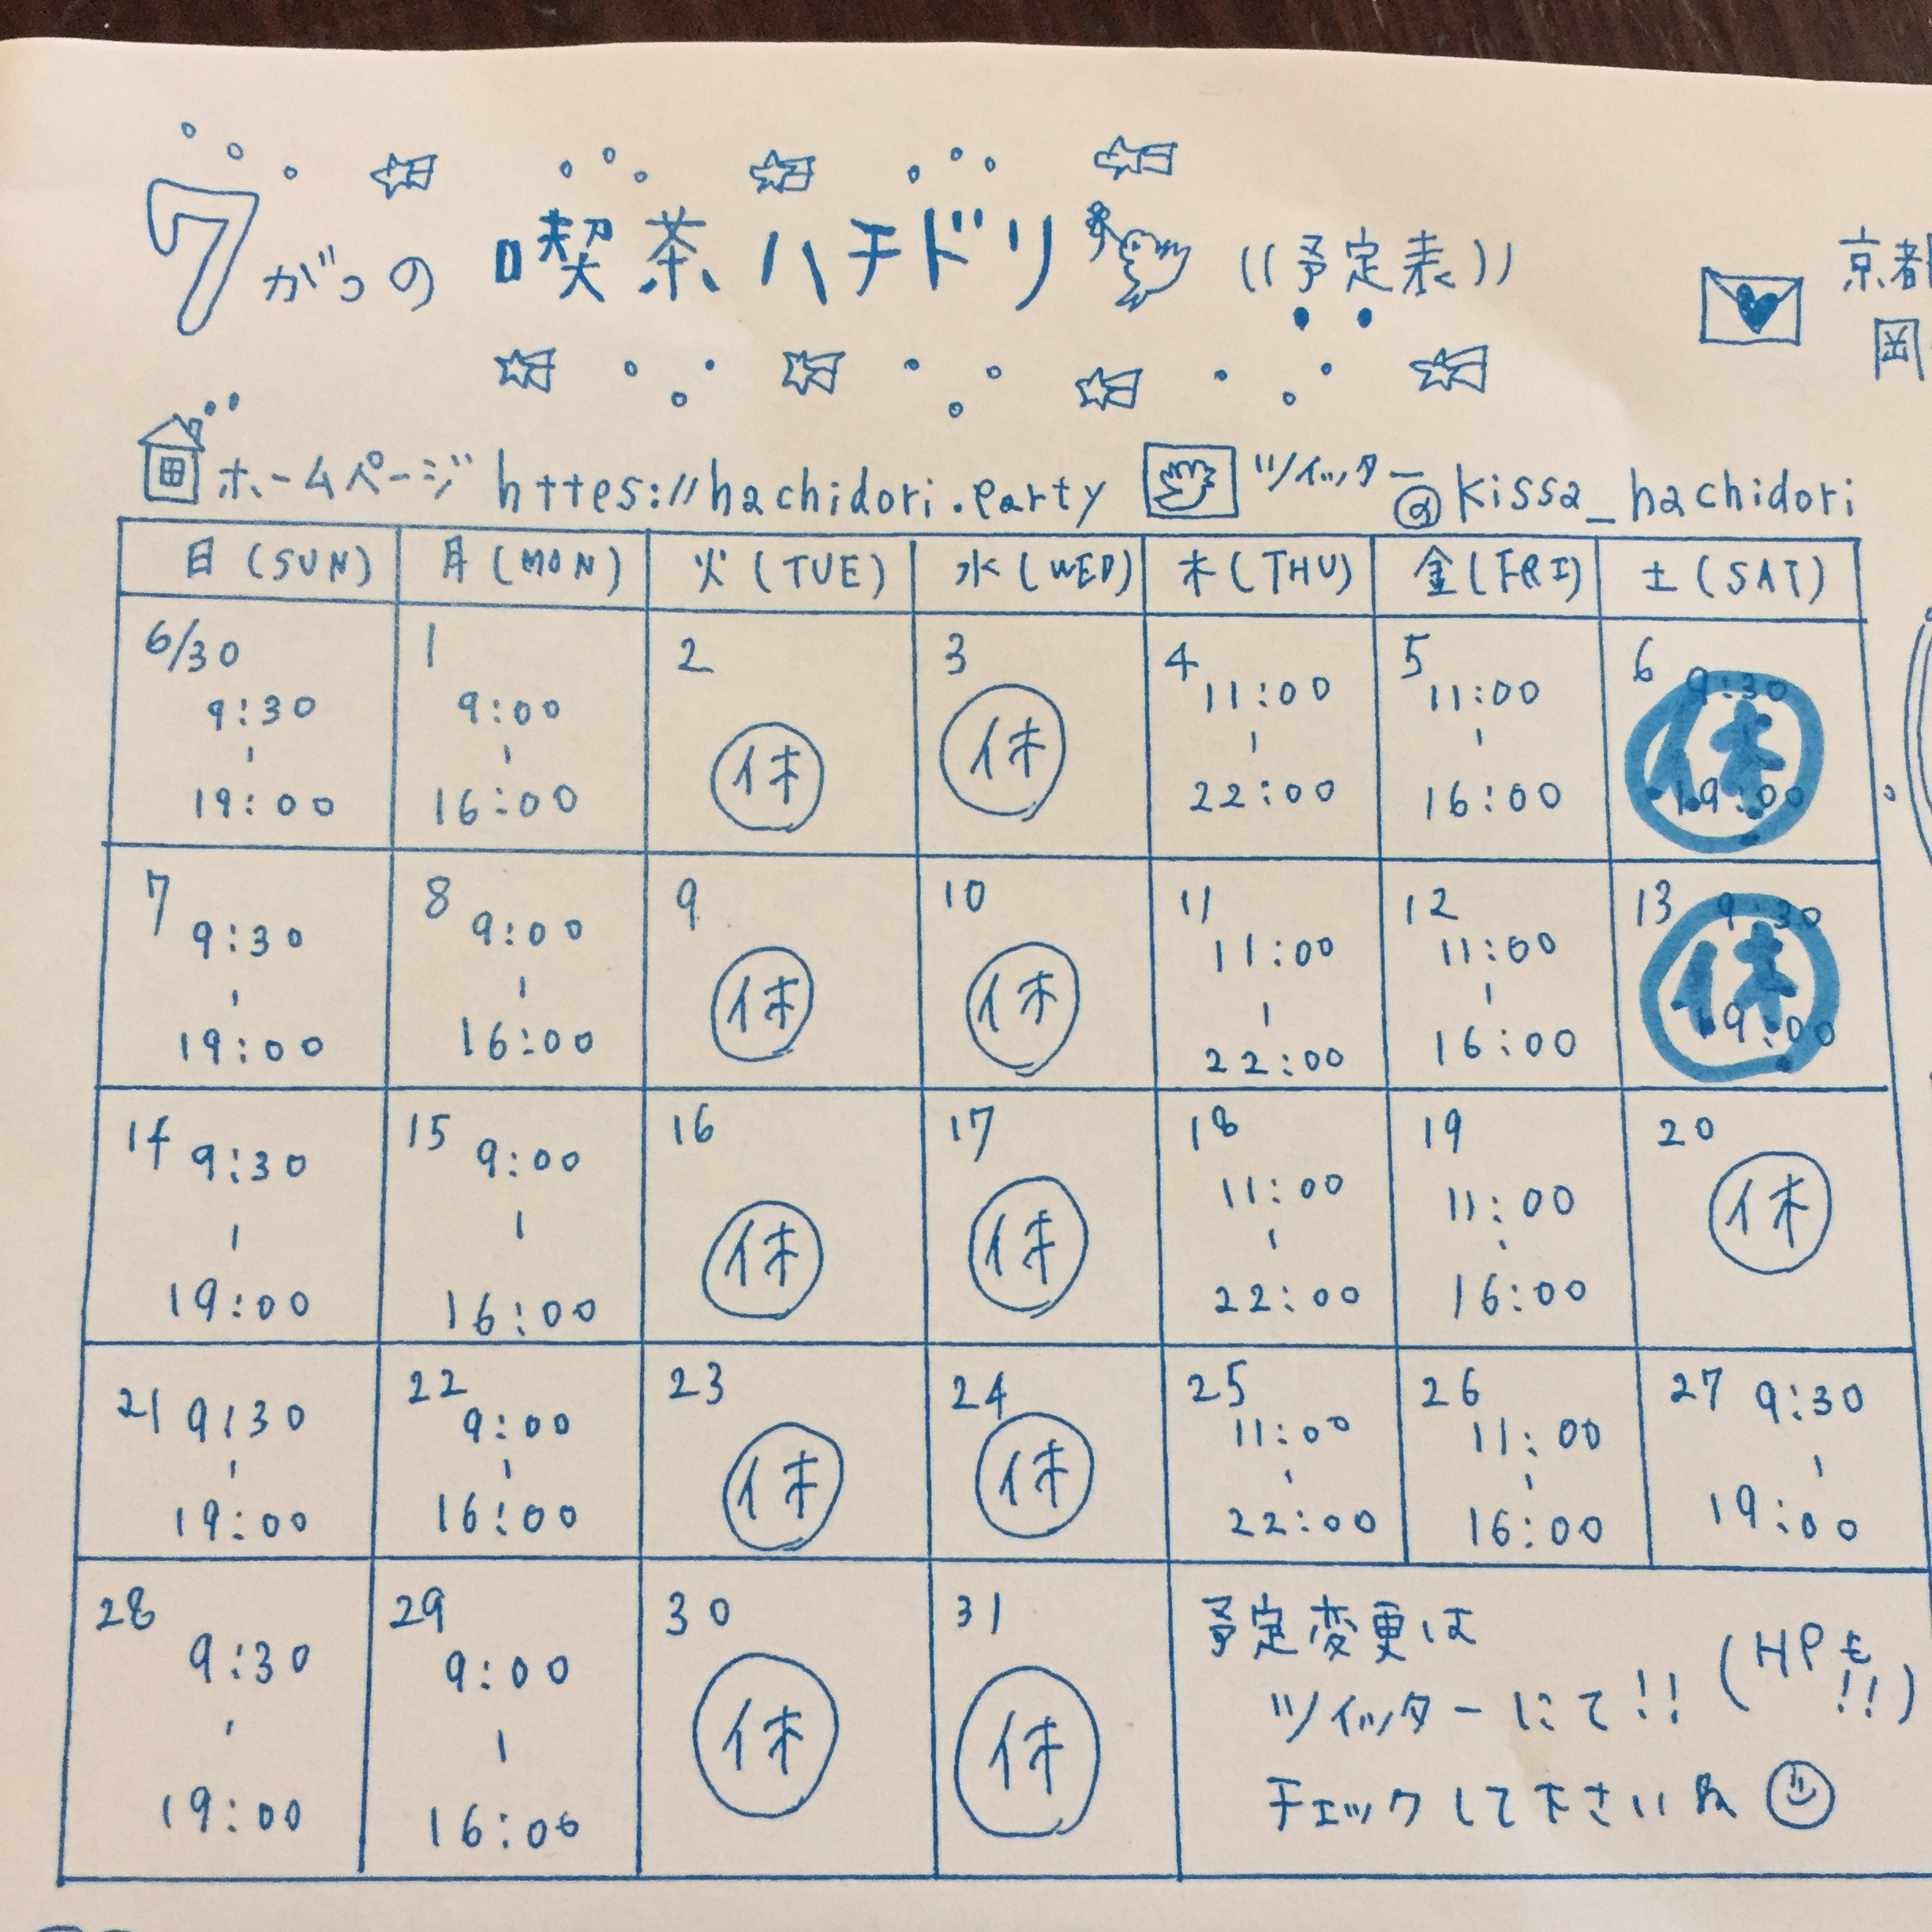 7がつの 喫茶ハチドリ ((予定表))
京都
岡
ホームページ https://hachidori.party ツイッター @kissa_hachidori
日(SUN) 月(MON) 火(TUE) 水(WED) 木(THU) 金(FRI) 土(SAT)
6/30 1 2 3 4 5 6
9:30 9:00 休 休 11:00 11:00 9:30 休
19:00 16:00 22:00 16:00 19:00
7 8 9 10 11 12 13
9:30 9:00 休 休 11:00 11:00 9:30 休
19:00 16:00 22:00 16:00 19:00
14 15 16 17 18 19 20
9:30 9:00 休 休 11:00 11:00 休
19:00 16:00 22:00 16:00
21 22 23 24 25 26 27
9:30 9:00 休 休 11:00 11:00 9:30
19:00 16:00 22:00 16:00 19:00
28 29 30 31
9:30 9:00 休 休
19:00 16:00
予定変更は
ツイッターにて!! (HPも!!)
チェックして下さいね